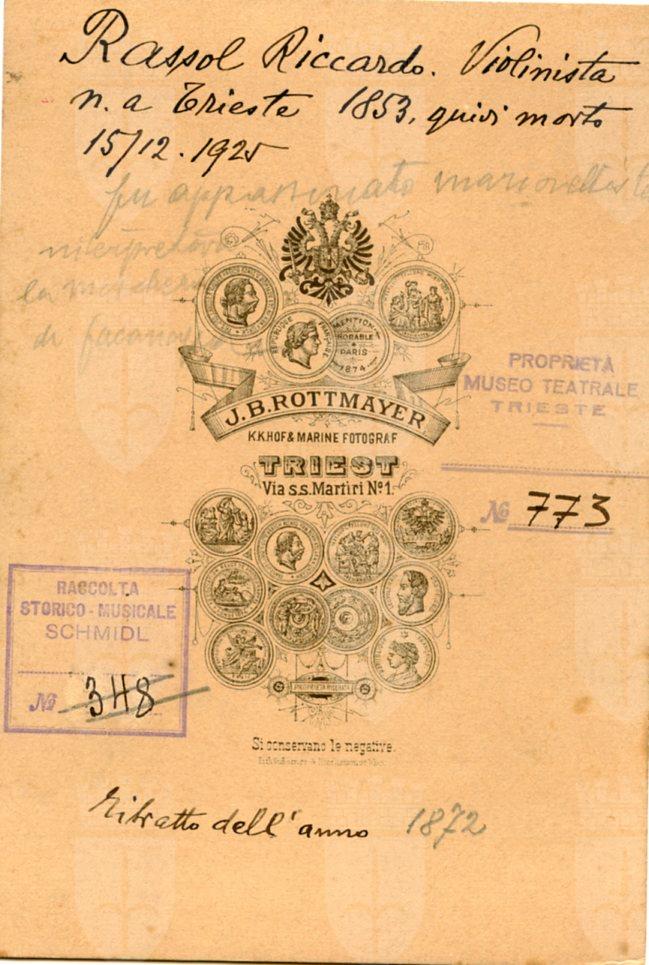 Rassol Riccardo. Violinista
n. a Trieste 1853, quivi morto
15/12.1925
fu appassionato
interpretava
la maschera
di
REPUBLIQUE FRANÇAISE
MENTION
HONORABLE
PARIS
1874
J.B.ROTTMAYER
K.K.HOF & MARINE FOTOGRAF
TRIEST
Via s.s. Martiri No 1.
PROPRIETÀ
MUSEO TEATRALE
TRIESTE
No 773
RACCOLTA
STORICO-MUSICALE
SCHMIDL
No 348
PROPRIETÀ RISERVATA
Si conservano le negative.
Ritratto dell'anno 1872